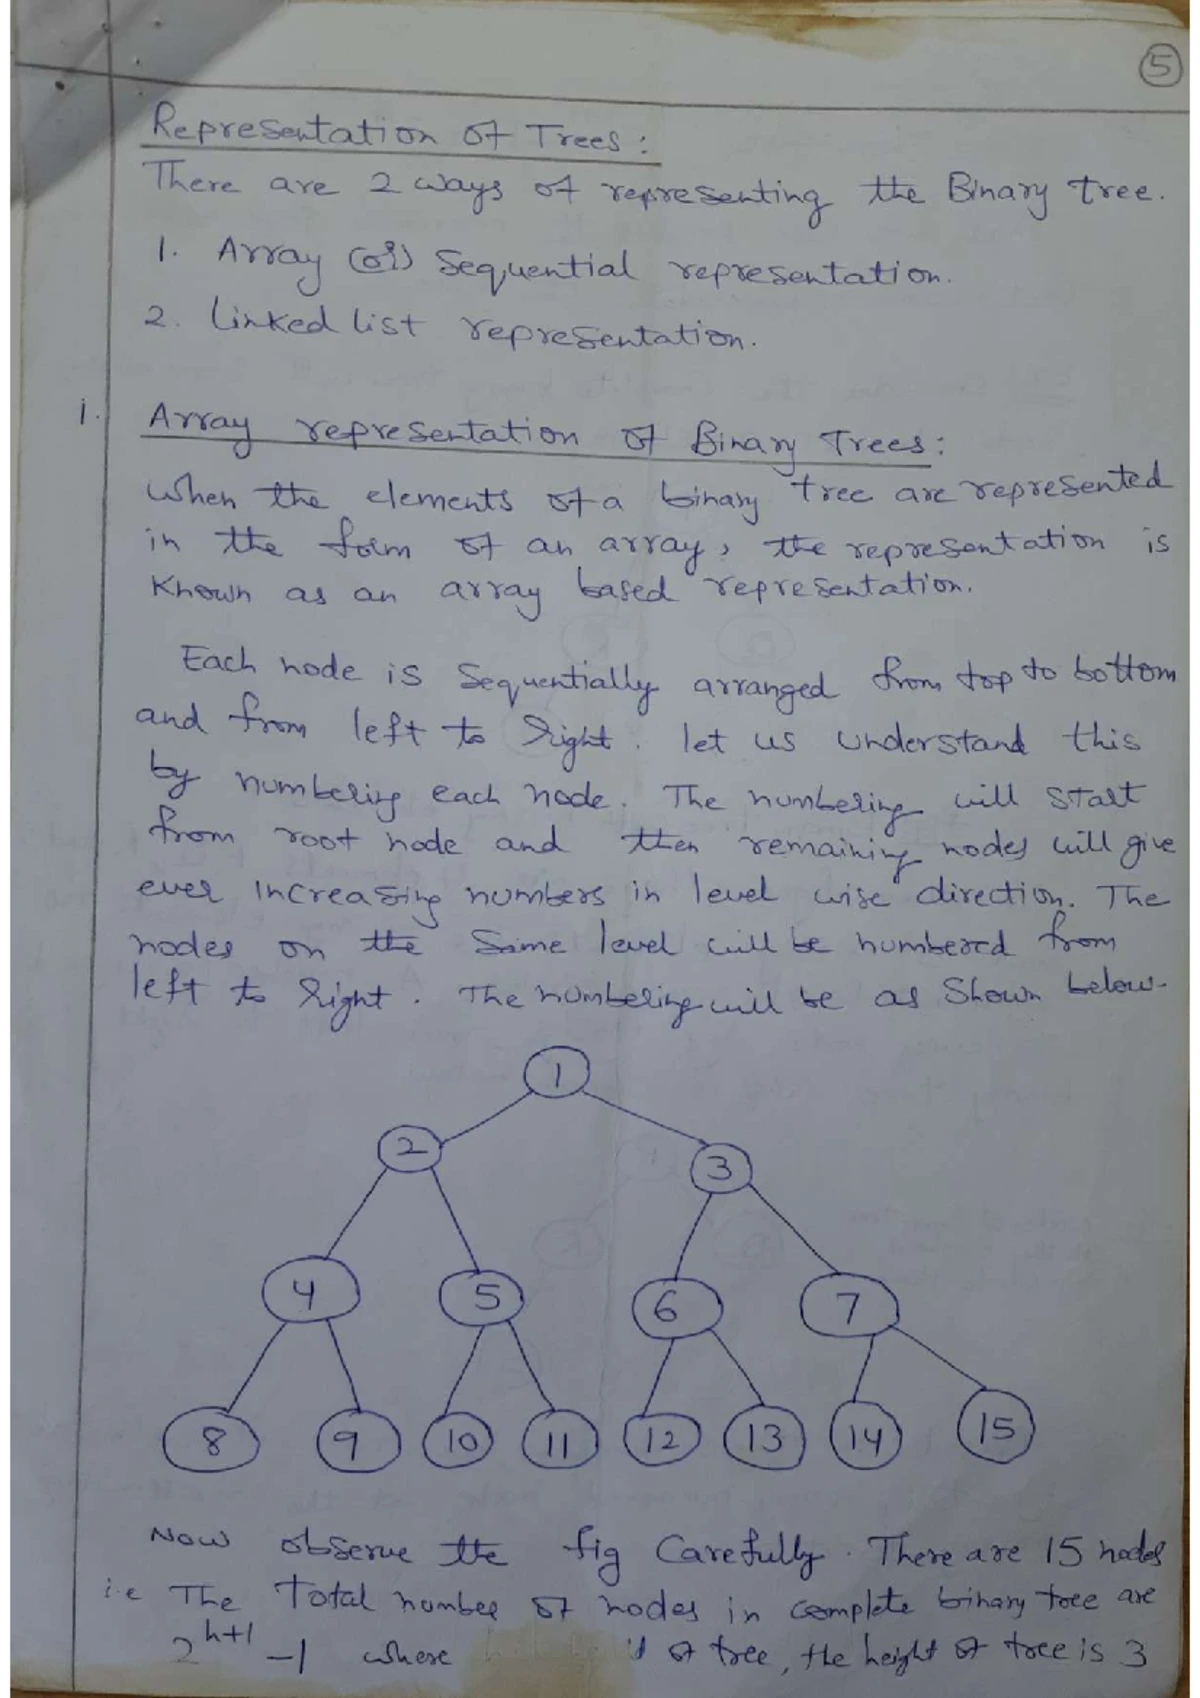 5
Representation of Trees:
There are 2 ways of representing the Binary tree.
1. Array (or) Sequential representation.
2. Linked list representation.
1. Array representation of Binary Trees:
When the elements of a binary tree are represented
in the form of an array, the representation is
Known as an array based representation.
Each node is Sequentially arranged from top to bottom
and from left to right. let us understand this
by numbering each node. The numbering will start
from root node and then remaining nodes will give
ever increasing numbers in level wise direction. The
nodes on the Same level will be numbered from
left to right. The numbering will be as Shown below.
1
2 3
4 5 6 7
8 9 10 11 12 13 14 15
Now observe the fig Carefully. There are 15 nodes
i.e The Total number of nodes in complete binary tree are
2^h+1 -1 where of tree, the height of tree is 3